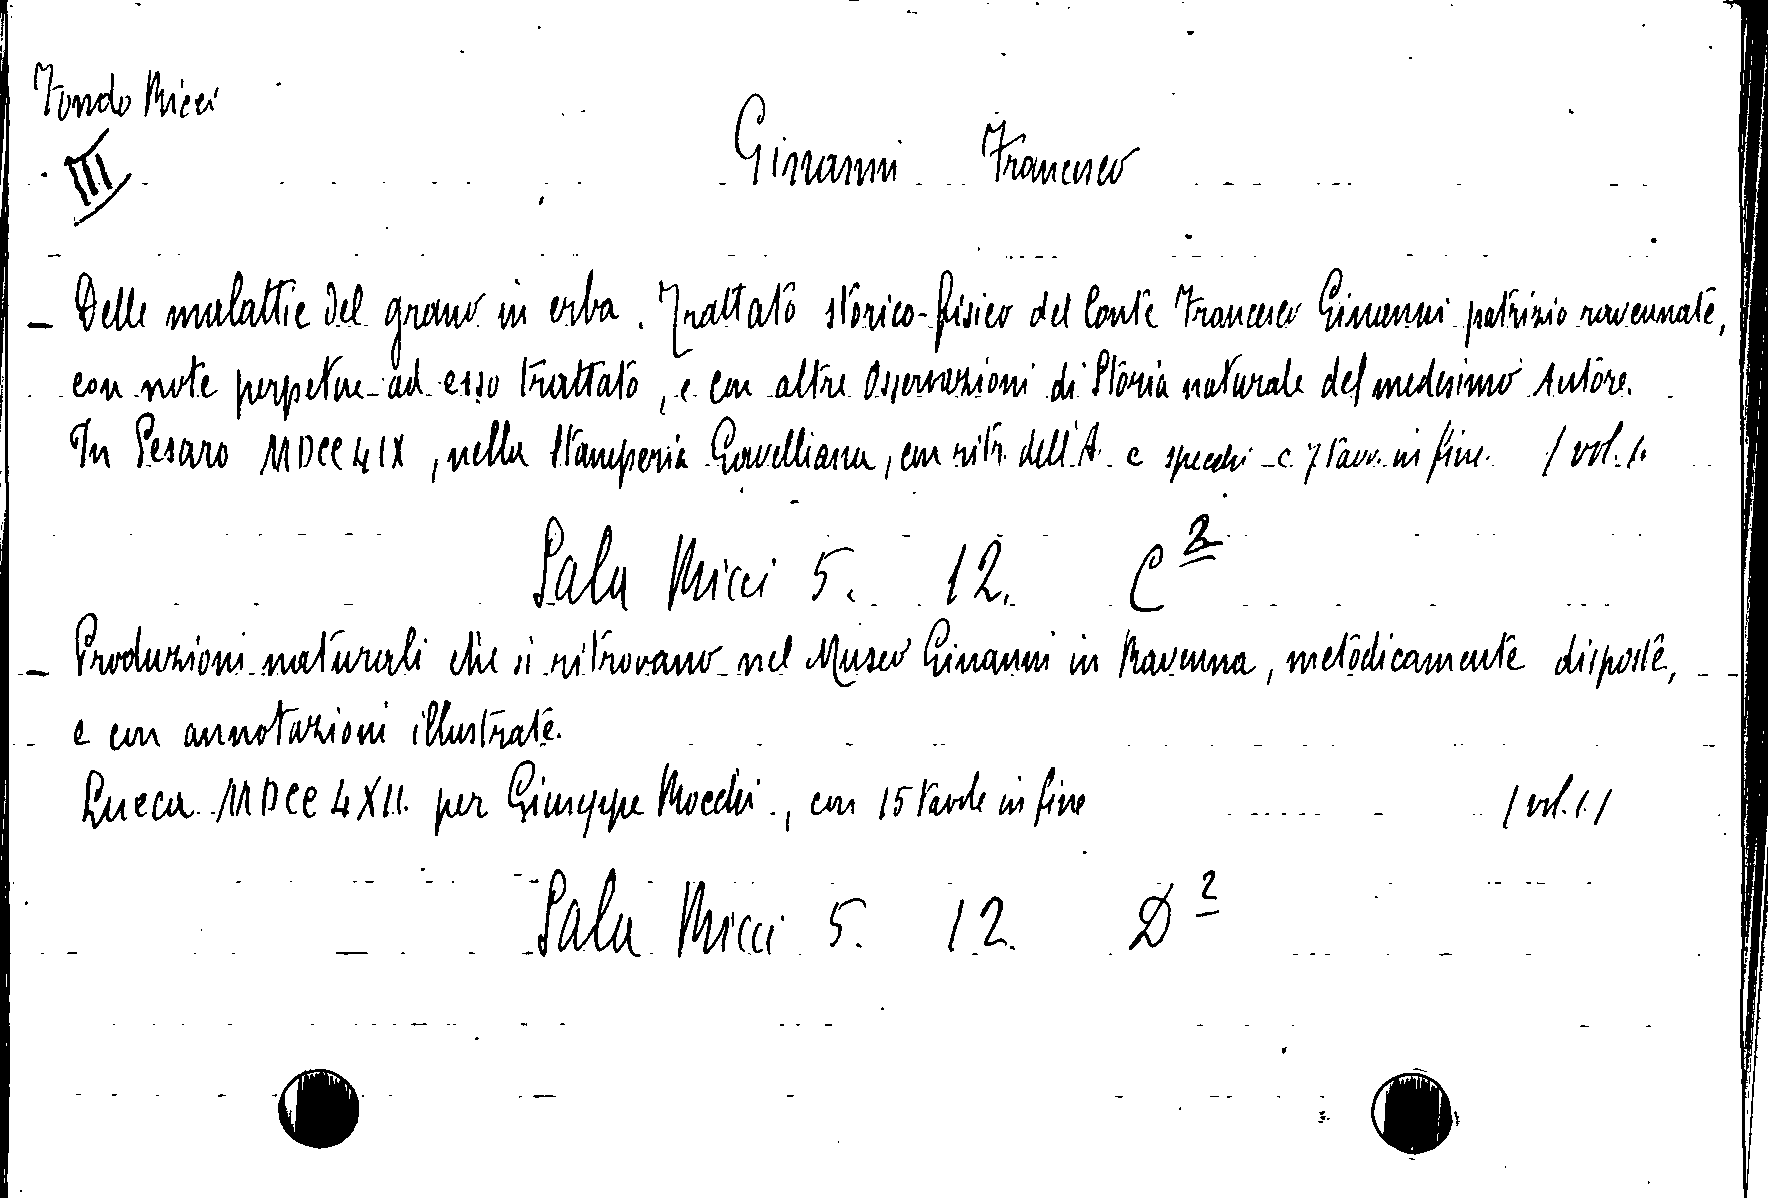 Fondo Ricci
III
Ginanni Francesco
- Delle malattie del grano in erba. Trattato storico-fisico del Conte Francesco Ginanni patrizio ravennate,
con note perpetue ad esso trattato, e con altre Osservazioni di Storia naturale del medesimo Autore.
In Pesaro MDCCLIX, nella Stamperia Gavelliana, con ritr. dell'A. e specchi e 7 tavv. in fine. / vol. 1.
Sala Ricci 5. 12. C 2
- Produzioni naturali che si ritrovano nel Museo Ginanni in Ravenna, metodicamente disposte,
e con annotazioni illustrate.
Lucca MDCCLXII. per Giuseppe Rocchi., con 15 tavole in fine / vol. 1. /
Sala Ricci 5. 12. D 2